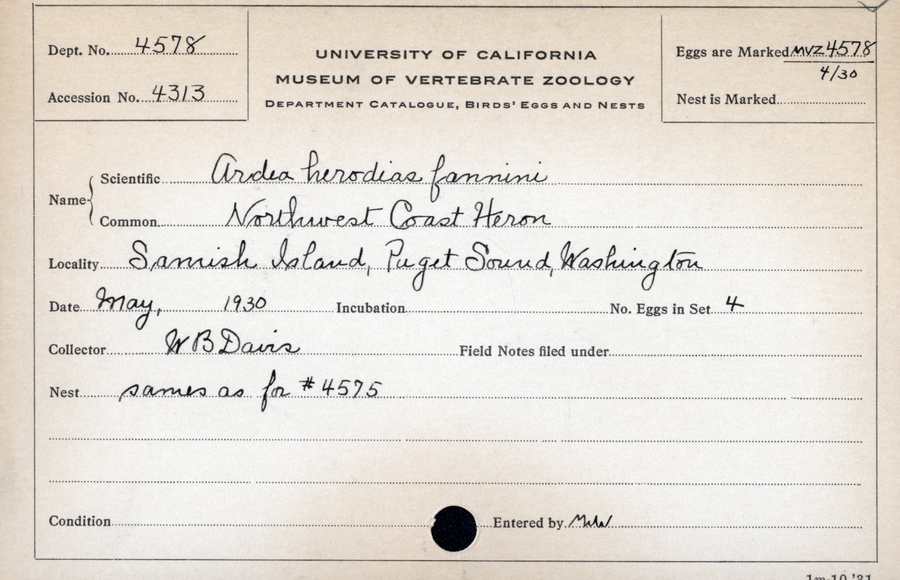 Dept. No. 4578
Accession No. 4313
UNIVERSITY OF CALIFORNIA
MUSEUM OF VERTEBRATE ZOOLOGY
DEPARTMENT CATALOGUE, BIRDS' EGGS AND NESTS
Eggs are Marked MVZ4578
4/30
Nest is Marked
Name
Scientific Ardea herodias fannini
Common Northwest Coast Heron
Locality Samish Island, Puget Sound, Washington
Date May, 1930 Incubation No. Eggs in Set 4
Collector W B Davis Field Notes filed under
Nest sames as for #4575
Condition Entered by
1m-10 '31